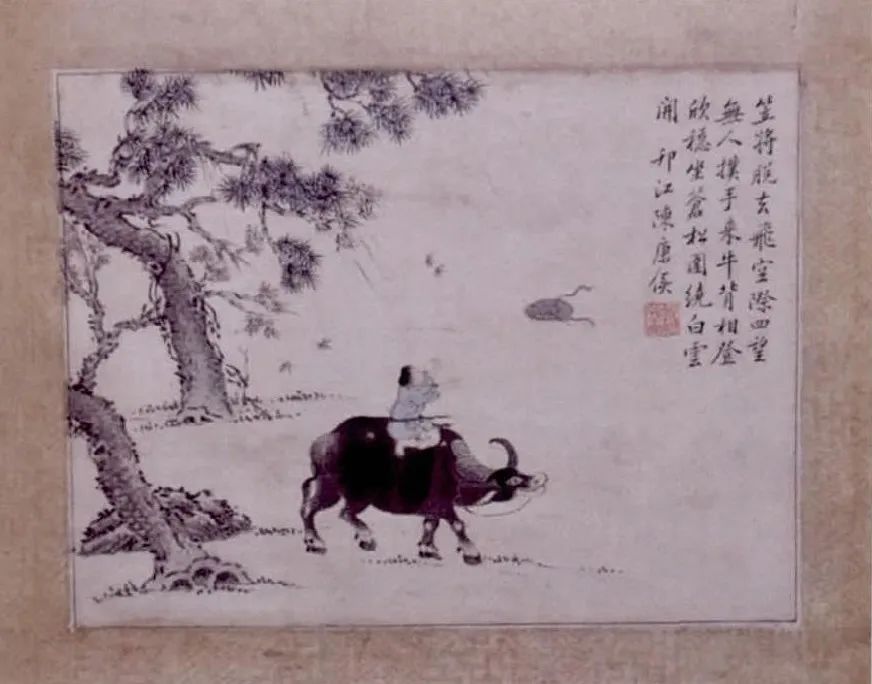 笠將脫去飛空際四望
無人撲手来牛背相登
欣穩坐蒼松圍繞白雲
開 邗江陳康侯